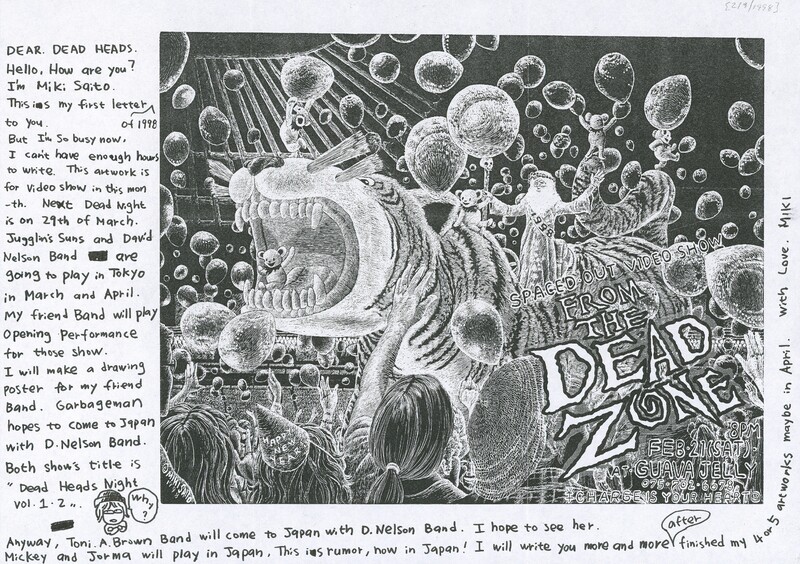 [2/9/1998]
DEAR. DEAD HEADS.
Hello, How are you?
I'm Miki Saito.
This is my first letter
of 1998
to you.
But I'm so busy now,
I can't have enough hours
to write. This artwork is
for video show in this mon
-th. Next Dead Night
is on 29th of March.
Jugglin's Suns and David
Nelson Band are
going to play in Tokyo
in March and April.
My friend Band will play
Opening Performance
for those show.
I will make a drawing
poster for my friend
Band. Garbageman
hopes to come to Japan
with D. Nelson Band.
Both show's title is
"Dead Heads Night
vol. 1 · 2 „.
Why?
Anyway, Toni. A. Brown Band will come to Japan with D. Nelson Band. I hope to see her.
Mickey and Jorma will play in Japan. This is rumor, now in Japan! I will write you more and more after finished my 4 or 5 artworks maybe in April. With Love. MIKI
1998
SPACED OUT VIDEO SHOW
FROM
THE
DEAD
ZONE
8PM
FEB·21(SAT)
AT·GUAVA JELLY
CHARGE IS YOUR HEART
HAPPY
NEW
YEAR